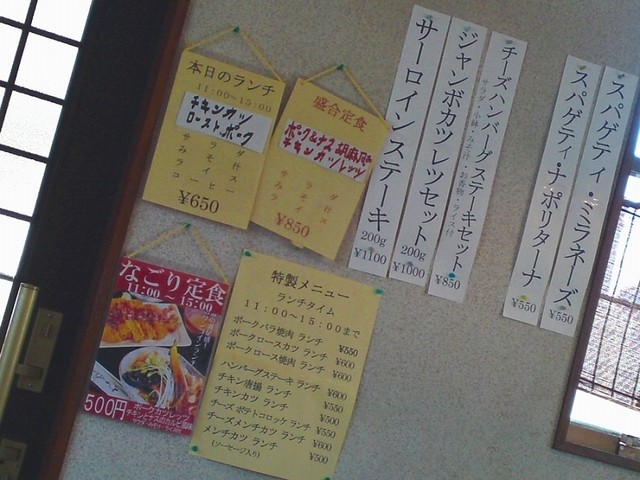 本日のランチ
11:00~15:00
チキンカツ
ローストポーク
サラダ
みそ汁
ライス
コーヒー
¥650
盛合定食
ポーク&ナス胡麻風味
チキンカツレツ
サラダ
みそ汁
ライス
¥850
サーロインステーキ
200g
¥1100
ジャンボカツレツセット
200g
¥1000
チーズハンバーグステーキセット
サラダ・小鉢・みそ汁・お香物・ライス付
¥850
スパゲティ・ナポリターナ
¥550
スパゲティ・ミラネーズ
¥550
なごり定食
11:00~15:00
500円
ポークカツレツ
特製メニュー
ランチタイム
11:00~15:00まで
ポークバラ焼肉 ランチ ¥550
ポークロースカツ ランチ ¥600
ポークロース焼肉 ランチ ¥600
ハンバーグステーキ ランチ ¥600
チキン唐揚 ランチ ¥550
チキンカツ ランチ ¥500
チーズ ポテトコロッケ ランチ ¥550
チーズメンチカツ ランチ ¥600
メンチカツ ランチ ¥500
(ソーセージ入り)